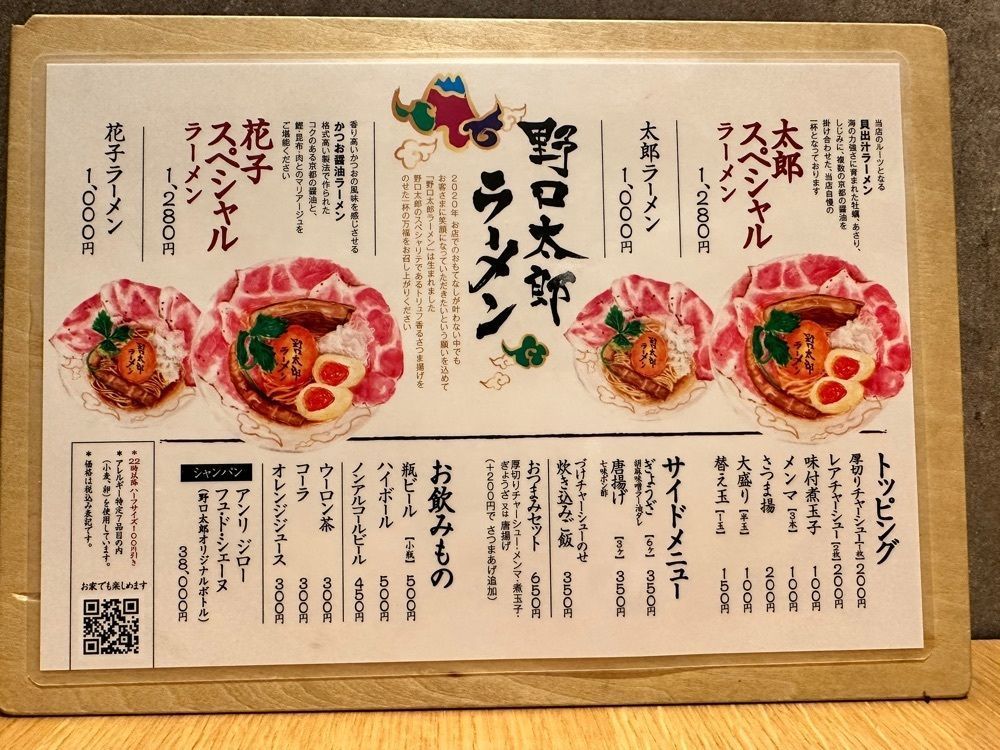 当店のルーツとなる
貝出汁ラーメン
海の力強さに育まれた牡蠣、あさり、
しじみに、複数の京都の醤油を
掛け合わせた、当店自慢の
一杯となっております
太郎
スペシャル
ラーメン
1,280円
太郎ラーメン
1,000円
野口太郎
ラーメン
2020年 お店でのおもてなしが叶わない中でも
お客さまに笑顔になっていただきたいという願いを込めて
「野口太郎ラーメン」は生まれました
野口太郎のスペシャリテであるトリュフ香るさつま揚げを
のせた一杯の万福をお召し上がりください
香り高いかつおの風味を感じさせる
かつお醤油ラーメン
格式高い製法で作られた
コクのある京都の醤油と、
鰹・昆布・肉とのマリアージュを
ご堪能ください
花子
スペシャル
ラーメン
1,280円
花子ラーメン
1,000円
野口太郎
ラーメン
野口太郎
ラーメン
野口太郎
ラーメン
野口太郎
ラーメン
トッピング
厚切りチャーシュー[1枚] 200円
レアチャーシュー[2枚] 200円
味付煮玉子 100円
メンマ[3本] 100円
さつま揚 200円
大盛り[半玉] 100円
替え玉[1玉] 150円
サイドメニュー
ぎょうざ[6ヶ] 350円
胡麻味噌ラー油ダレ
唐揚げ[3ヶ] 350円
七味ポン酢
づけチャーシューのせ
炊き込みご飯 350円
おつまみセット 650円
厚切りチャーシュー・メンマ・煮玉子・
ぎょうざ又は唐揚げ
(+200円で さつまあげ追加)
お飲みもの
瓶ビール[小瓶] 500円
ハイボール 500円
ノンアルコールビール 450円
ウーロン茶 300円
コーラ 300円
オレンジジュース 300円
シャンパン
アンリ ジロー
フュ・ド・シェーヌ
(野口太郎オリジナルボトル)
38,000円
*22時以降 ハーフサイズ100円引き
*アレルギー特定7品目の内
(小麦、卵)を使用しています。
*価格は税込み表記です。
お家でも楽しめます